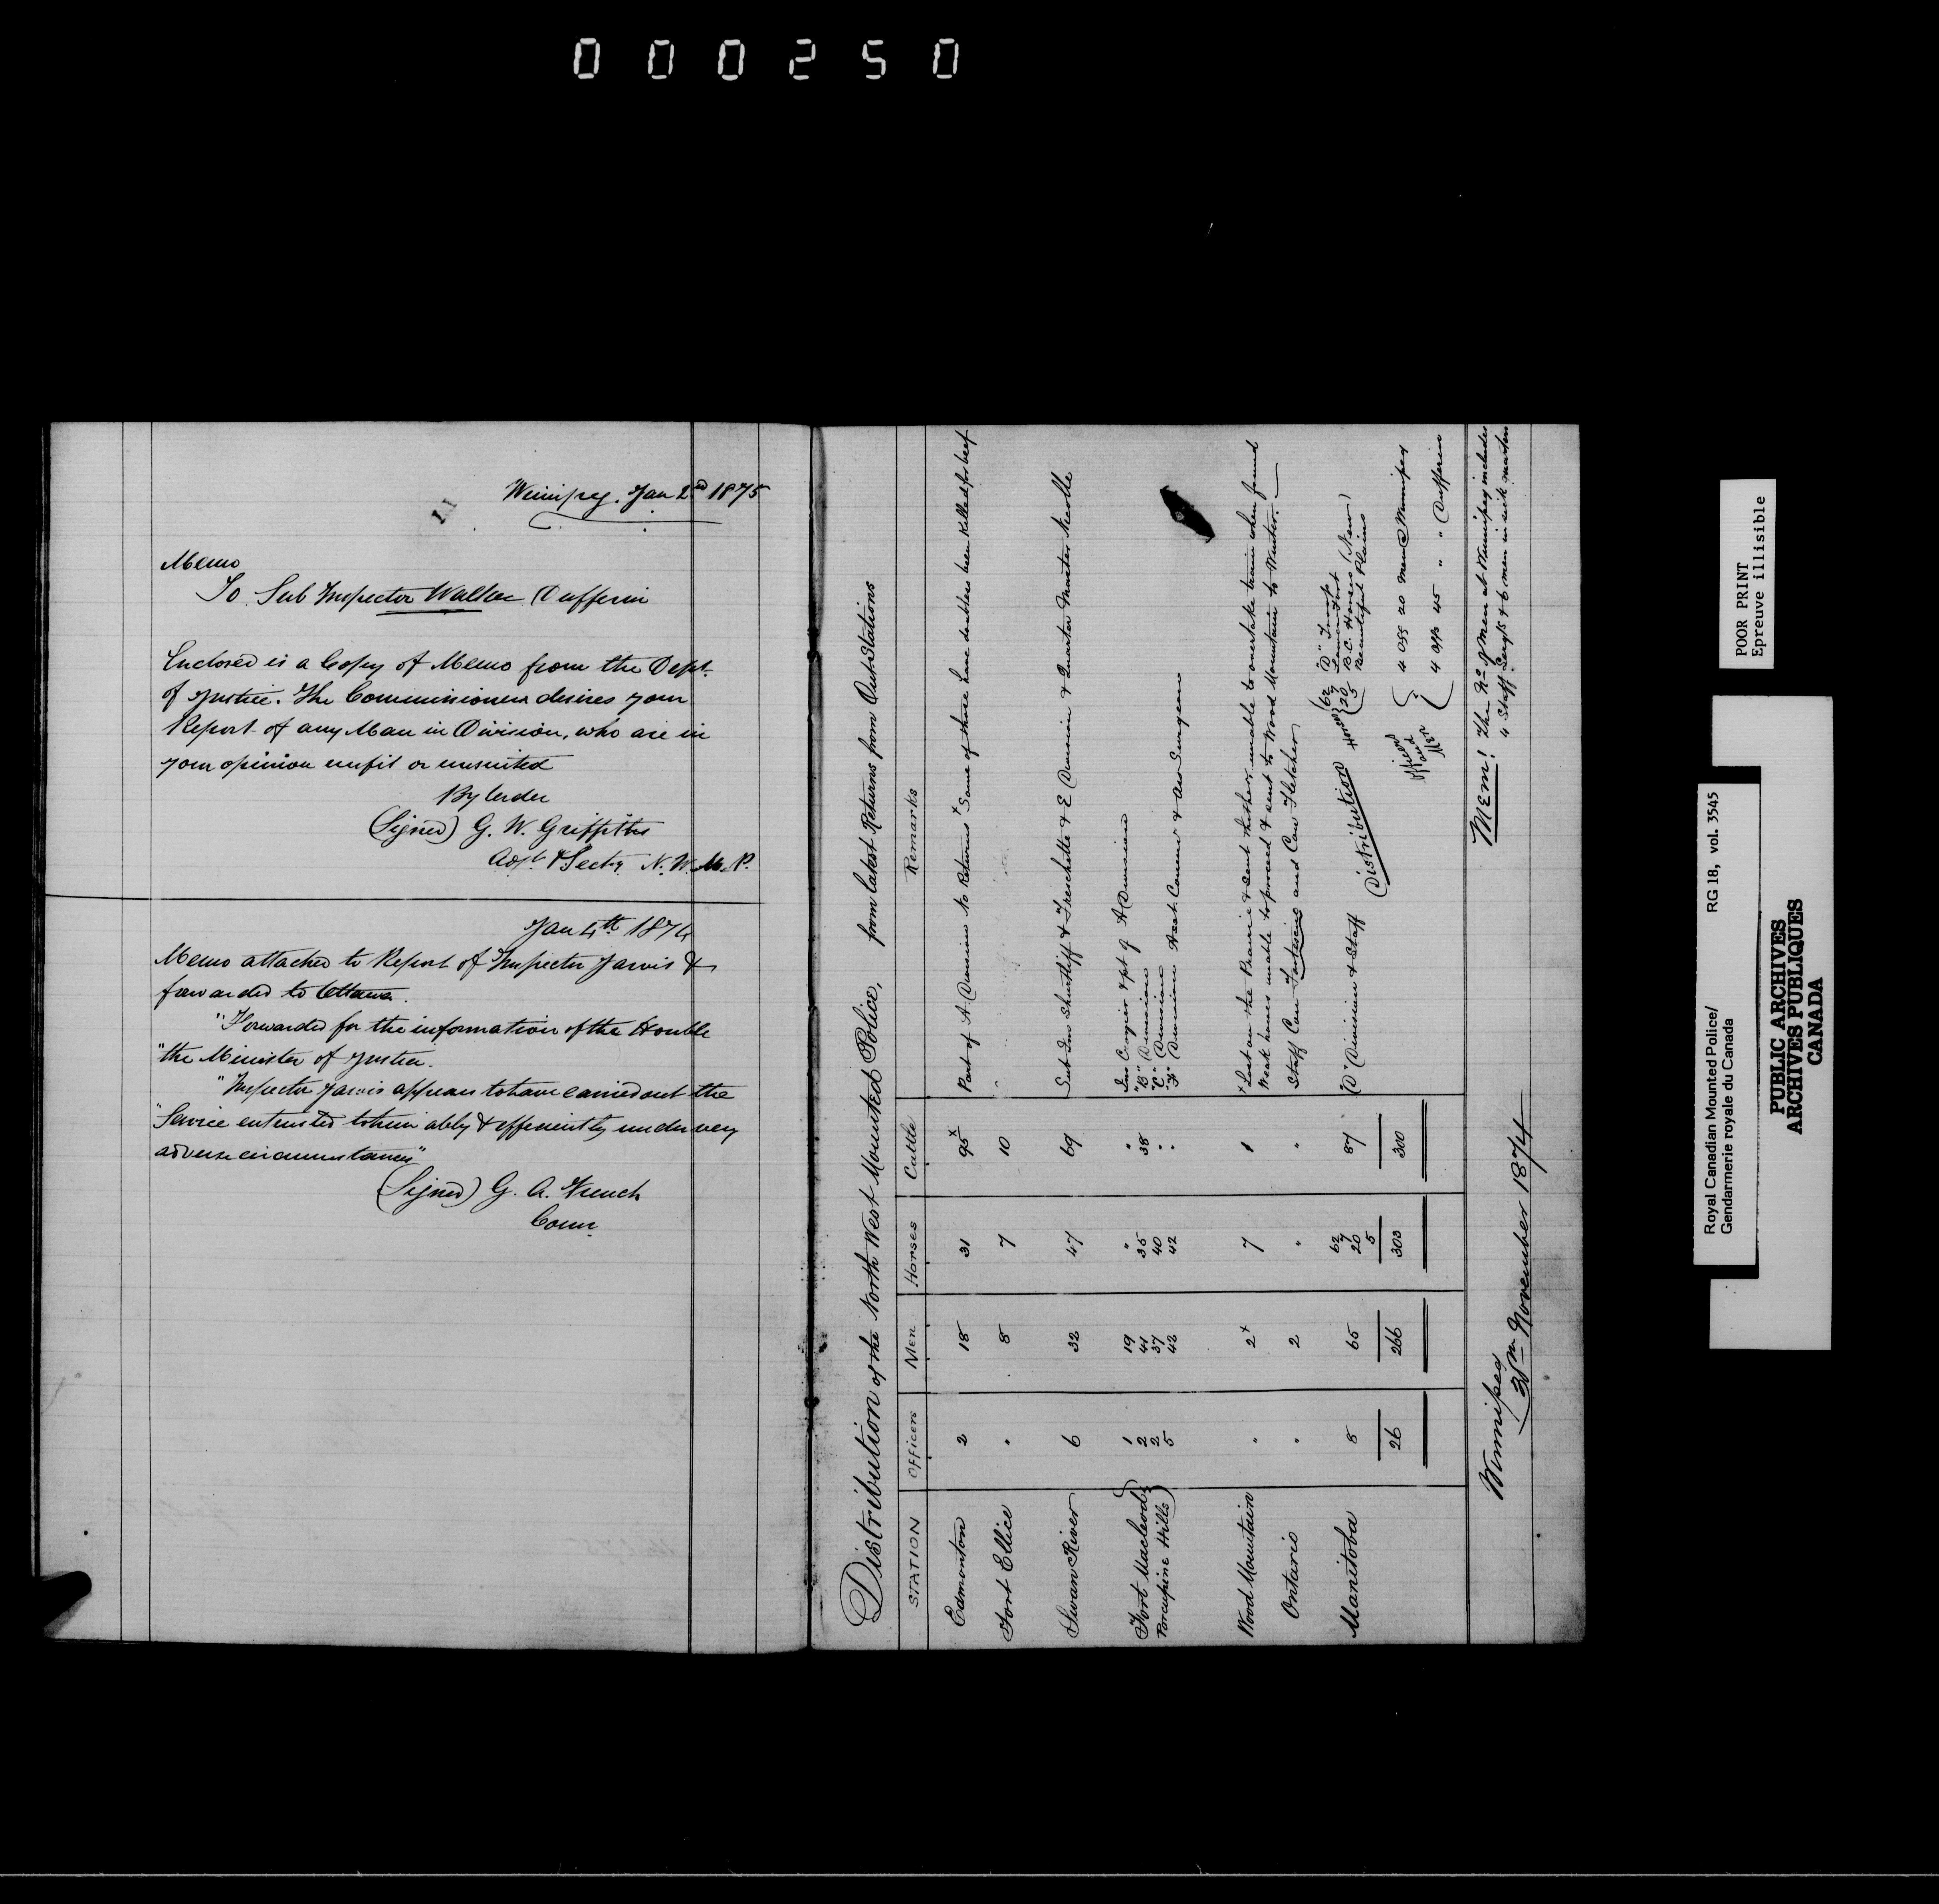 000250
Winnipeg. Jan 2nd 1875
Memo
To Sub Inspector Walker Dufferin
Enclosed is a Copy of Memo from the Dept.
of Justice. The Commissioner desires your
Report of any Man in Division, who are in
your opinion unfit or unsuited
By Order
(Signed) G. W. Griffiths
Adjt. & Secty. N. W. M. P.
Jan 4th 1874
Memo attached to Report of Inspector Jarvis &
forwarded to Ottawa.
"Forwarded for the information of the Honble
"the Minister of Justice.
"Inspector Jarvis appears to have carried out the
"Service entrusted to him ably & efficiently under very
adverse circumstances"
(Signed) G. A. French
Comr.
Distribution of the North West Mounted Police, from latest Returns from Out Stations
STATION Officers Men Horses Cattle Remarks
Edmonton 2 18 31 95x Part of A. Division no Returns x Some of these have doubtless been killed for beef
Fort Ellice " 8 7 10 "
Swan River 6 32 47 69 Sub Ins Shurtliff & Freschette & E Division & Quarter Master Nicolle
Fort Macleod 1 19 " " Ins Crozier & pt of A Division
Porcupine Hills) 2 41 35 38 "B" Division
2 37 40 " "C" Division
5 42 42 " "F" Division Asst. Commr & Surgeon
Wood Mountain " 2x 7 1 x Lost on the Prairie & sent thither, unable to overtake train when found
Weak horses unable to proceed & sent to Wood Mountain to Winter.
Ontario " 2 " " Staff Con Fortescue and Con Fletcher
Manitoba 8 65 62 87 "D" Division & Staff
7
20
5
26 266 303 300
Distribution
Horses { 62 "D" Troop
7
20 B.C. Horses (New)
5 Beautiful Plains
Officers
and
Men
{ 4 offs 20 men Winnipeg
4 offs 45 " " Dufferin
Winnipeg
30th November 1874
MEM! The No. of Men at Winnipeg includes
4 Staff Sergts & 6 men in sick quarters
POOR PRINT
Epreuve illisible
Royal Canadian Mounted Police/ RG 18, vol. 3545
Gendarmerie royale du Canada
PUBLIC ARCHIVES
ARCHIVES PUBLIQUES
CANADA